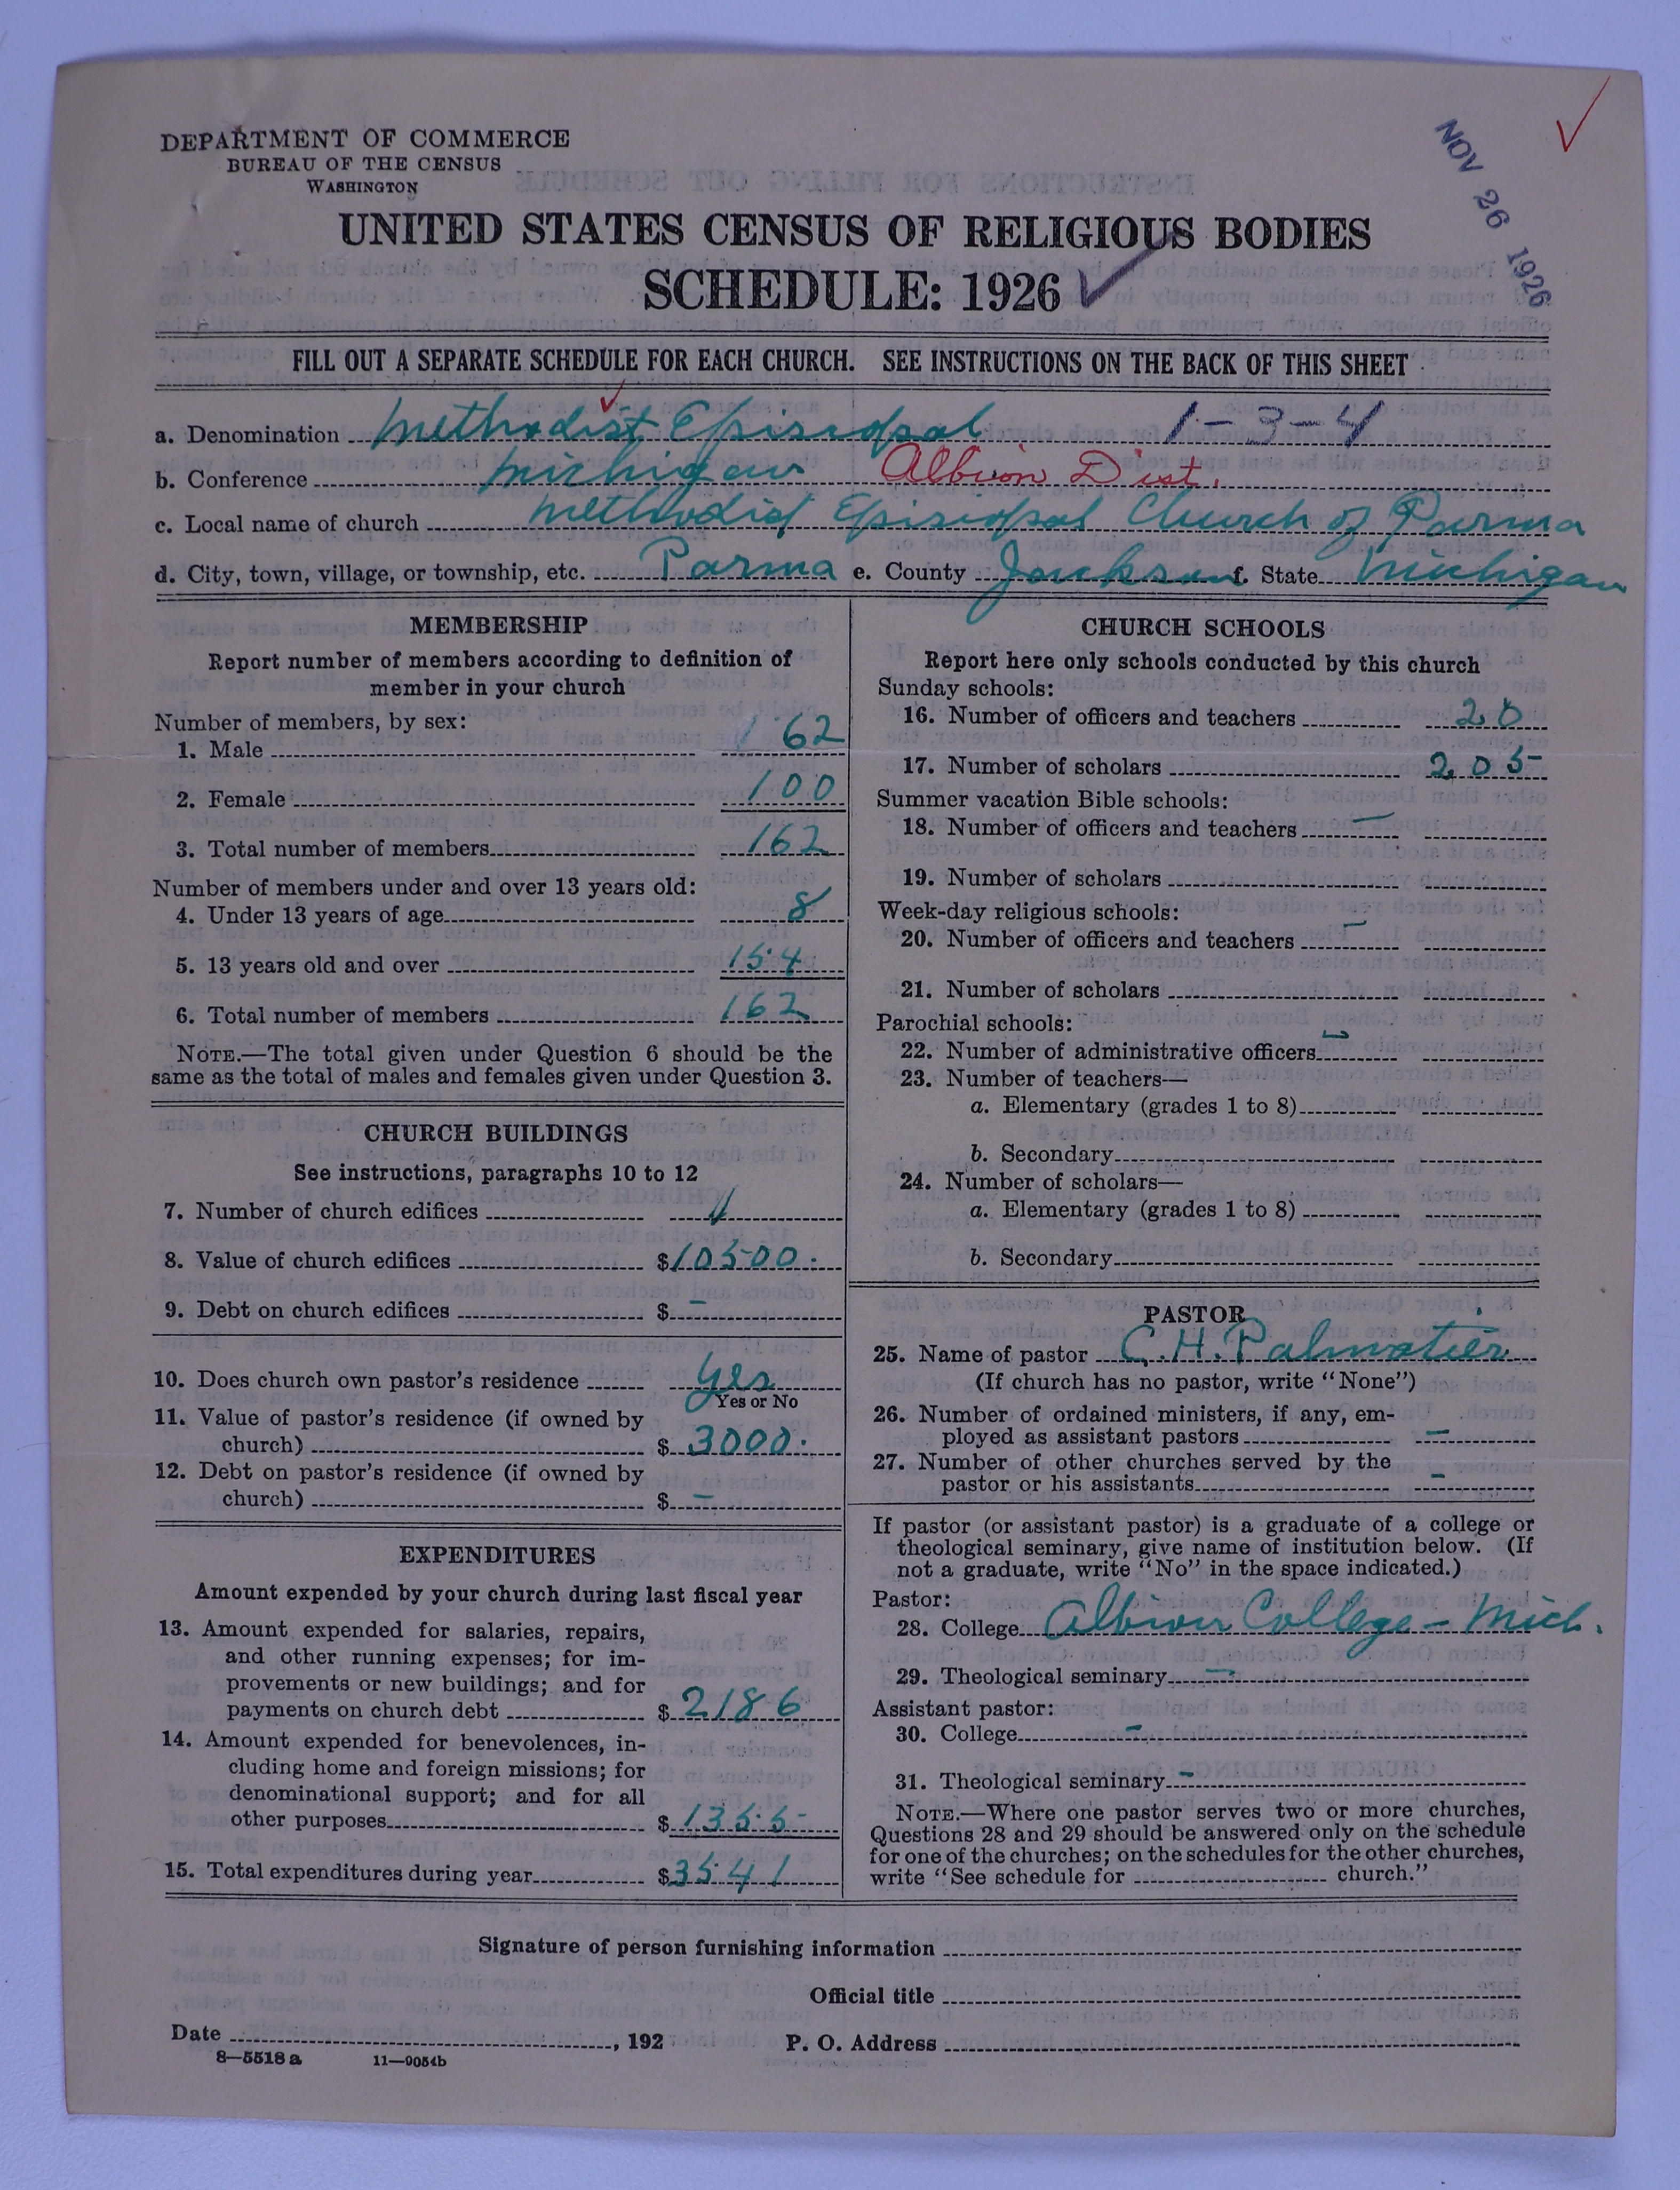 DEPARTMENT OF COMMERCE
BUREAU OF THE CENSUS
WASHINGTON
NOV 26 1926
UNITED STATES CENSUS OF RELIGIOUS BODIES
SCHEDULE: 1926
FILL OUT A SEPARATE SCHEDULE FOR EACH CHURCH. SEE INSTRUCTIONS ON THE BACK OF THIS SHEET
a. Denomination Methodist Episcopal 1-3-4
b. Conference Michigan Albion Dist.
c. Local name of church Methodist Episcopal Church of Parma
d. City, town, village, or township, etc. Parma e. County Jackson f. State Michigan
MEMBERSHIP
Report number of members according to definition of
member in your church
Number of members, by sex:
1. Male 62
2. Female 100
3. Total number of members 162
Number of members under and over 13 years old:
4. Under 13 years of age 8
5. 13 years old and over 154
6. Total number of members 162
NOTE.—The total given under Question 6 should be the
same as the total of males and females given under Question 3.
CHURCH BUILDINGS
See instructions, paragraphs 10 to 12
7. Number of church edifices 1
8. Value of church edifices $10500.
9. Debt on church edifices $ –
10. Does church own pastor's residence yes
Yes or No
11. Value of pastor's residence (if owned by
church) $ 3000.
12. Debt on pastor's residence (if owned by
church) $ –
EXPENDITURES
Amount expended by your church during last fiscal year
13. Amount expended for salaries, repairs,
and other running expenses; for im-
provements or new buildings; and for
payments on church debt $ 2186
14. Amount expended for benevolences, in-
cluding home and foreign missions; for
denominational support; and for all
other purposes $ 1355
15. Total expenditures during year $3541
CHURCH SCHOOLS
Report here only schools conducted by this church
Sunday schools:
16. Number of officers and teachers 20
17. Number of scholars 205
Summer vacation Bible schools:
18. Number of officers and teachers –
19. Number of scholars
Week-day religious schools:
20. Number of officers and teachers –
21. Number of scholars
Parochial schools:
22. Number of administrative officers –
23. Number of teachers—
a. Elementary (grades 1 to 8)
b. Secondary
24. Number of scholars—
a. Elementary (grades 1 to 8)
b. Secondary
PASTOR
25. Name of pastor C. H. Palmatier
(If church has no pastor, write "None")
26. Number of ordained ministers, if any, em-
ployed as assistant pastors –
27. Number of other churches served by the
pastor or his assistants –
If pastor (or assistant pastor) is a graduate of a college or
theological seminary, give name of institution below. (If
not a graduate, write "No" in the space indicated.)
Pastor:
28. College Albion College – Mich.
29. Theological seminary –
Assistant pastor:
30. College –
31. Theological seminary –
NOTE.—Where one pastor serves two or more churches,
Questions 28 and 29 should be answered only on the schedule
for one of the churches; on the schedules for the other churches,
write "See schedule for church."
Signature of person furnishing information
Official title
Date , 192 P. O. Address
8—5518 a 11—9054b